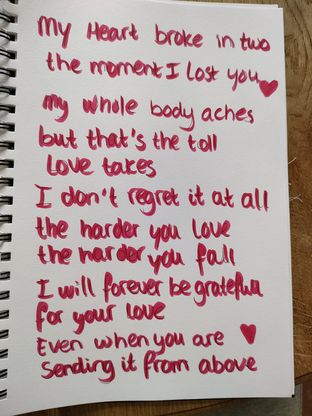 My Heart broke in two
the moment I lost you
my whole body aches
but that's the toll
Love takes
I don't regret it at all
the harder you love
the harder you fall
I will forever be grateful
for your love
Even when you are
Sending it from above